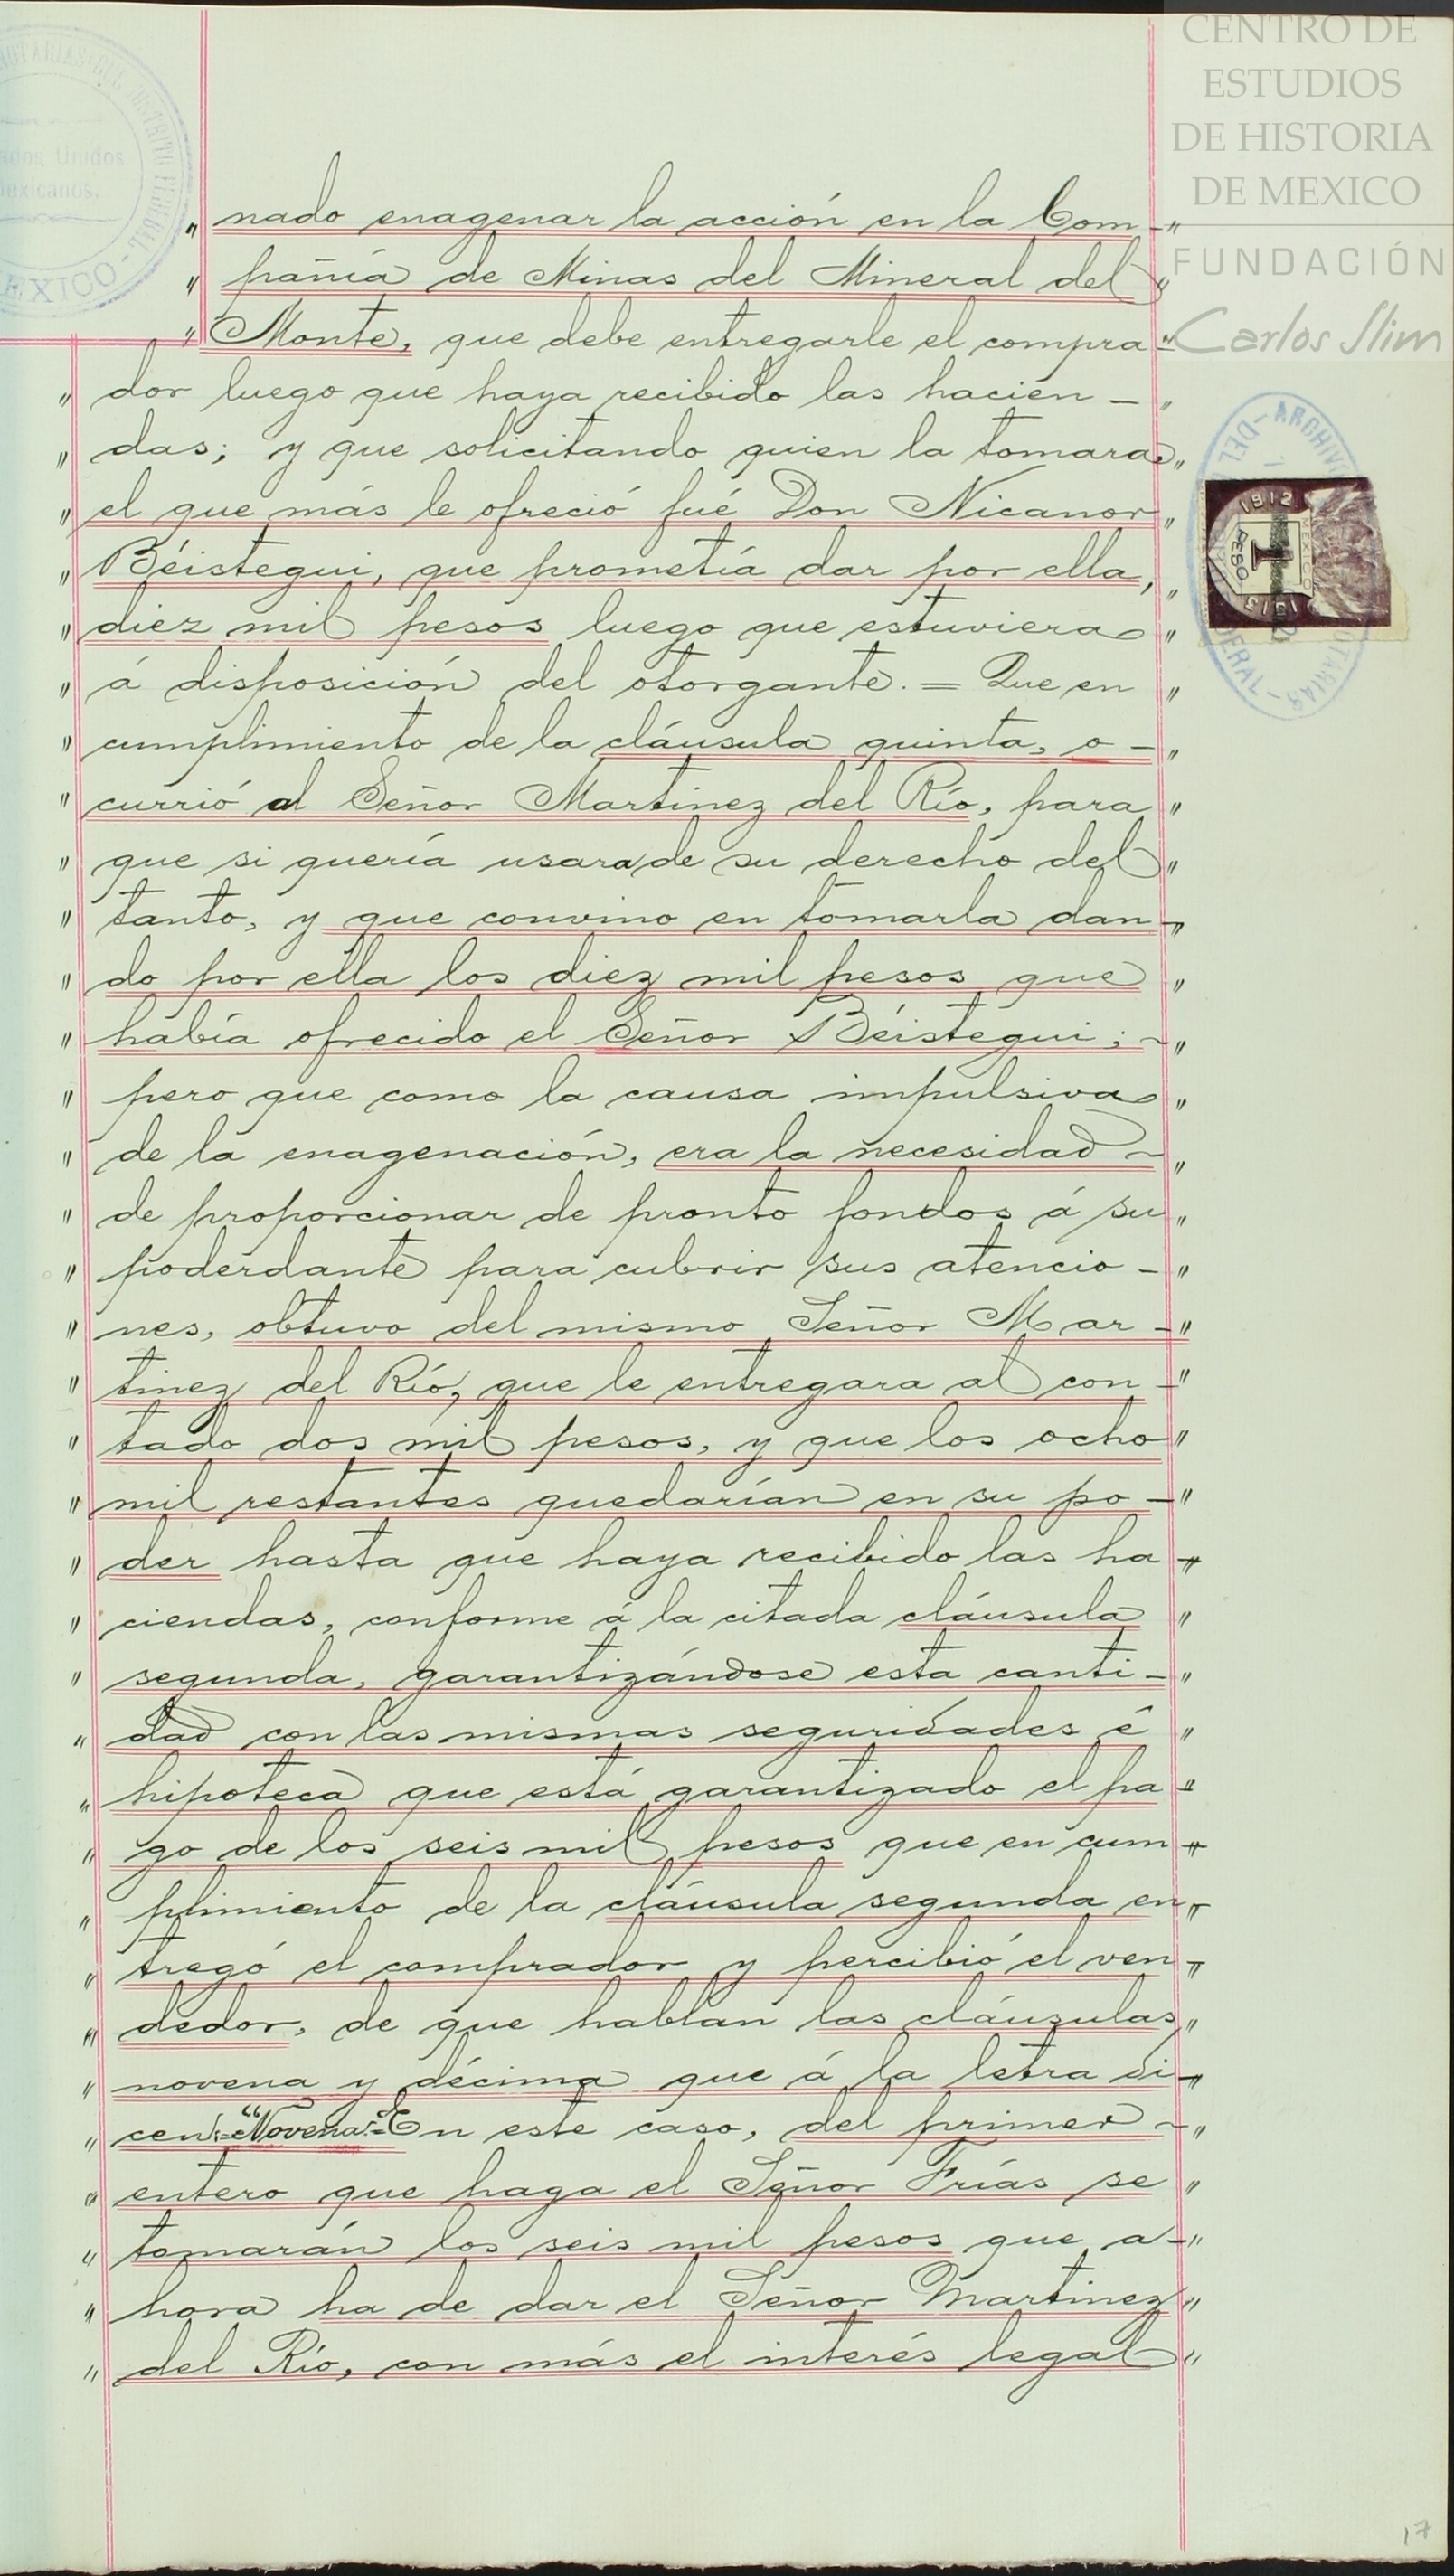 CENTRO DE
ESTUDIOS
DE HISTORIA
DE MEXICO
FUNDACIÓN
Carlos Slim
NOTARIAS DEL DISTRITO FEDERAL -
Unidos
Mexicanos.
MEXICO -
" nado enagenar la acción en la Com-"
" pañía de Minas del Mineral del "
" Monte, que debe entregarle el compra-"
" dor luego que haya recibido las hacien-"
" das; y que solicitando quien la tomara "
" el que más le ofreció fué Don Nicanor "
" Béistegui, que prometía dar por ella, "
" diez mil pesos luego que estuviera "
" á disposición del otorgante. = Que en "
" cumplimiento de la cláusula quinta, o-"
" currió al Señor Martinez del Río, para "
" que si quería usara de su derecho del "
" tanto, y que convino en tomarla dan-"
" do por ella los diez mil pesos que "
" había ofrecido el Señor Béistegui; -"
" pero que como la causa impulsiva "
" de la enagenación, era la necesidad -"
" de proporcionar de pronto fondos á su "
" poderdante para cubrir sus atencio-"
" nes, obtuvo del mismo Señor Mar-"
" tinez del Río, que le entregara al con-"
" tado dos mil pesos, y que los ocho "
" mil restantes quedarían en su po-"
" der hasta que haya recibido las ha-"
" ciendas, conforme á la citada cláusula "
" segunda, garantizándose esta canti-"
" dad con las mismas seguridades é "
" hipoteca que está garantizado el pa-"
" go de los seis mil pesos que en cum-"
" plimiento de la cláusula segunda en-"
" tregó el comprador y percibió el ven-"
" dedor, de que hablan las cláusulas "
" novena y décima que á la letra di-"
" cen:="Novena."=En este caso, del primer -"
" entero que haga el Señor Frías se "
" tomarán los seis mil pesos que a-"
" hora ha de dar el Señor Martinez "
" del Río, con más el interés legal "
- ARCHIVO
NOTARIAS
1912
MEXICO
1
PESO
1913
17